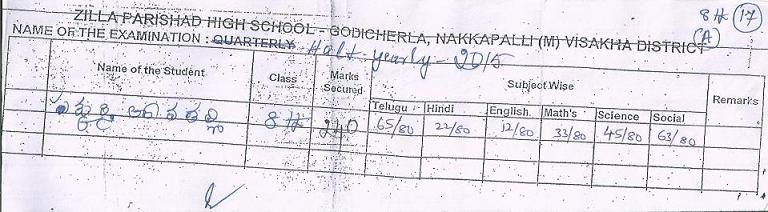 8th (17)
ZILLA PARISHAD HIGH SCHOOL - GODICHERLA, NAKKAPALLI (M) VISAKHA DISTRICT (A)
NAME OF THE EXAMINATION : QUARTERLY Half yearly - 2015
Name of the Student Class Marks Secured Subject Wise Remarks
Telugu Hindi English Math's Science Social
8th 240 65/80 22/80 12/80 33/80 45/80 63/80